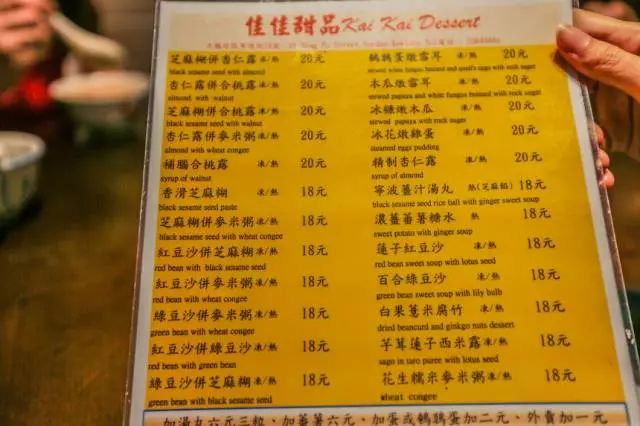 佳佳甜品 Kai Kai Dessert
芝麻糊併杏仁露 凍/熱 20元
black sesame seed with almond
杏仁露併合桃露 凍/熱 20元
almond with walnut
芝麻糊併合桃露 凍/熱 20元
black sesame seed with walnut
杏仁露併麥米粥 凍/熱 20元
almond with wheat congee
補腦合桃露 凍/熱 20元
syrup of walnut
香滑芝麻糊 凍/熱 18元
black sesame seed paste
芝麻糊併麥米粥 凍/熱 18元
black sesame seed with wheat congee
紅豆沙併芝麻糊 凍/熱 18元
red bean with black sesame seed
紅豆沙併麥米粥 凍/熱 18元
red bean with wheat congee
綠豆沙併麥米粥 凍/熱 18元
green bean with wheat congee
紅豆沙併綠豆沙 凍/熱 18元
red bean with green bean
綠豆沙併芝麻糊 凍/熱 18元
green bean with black sesame seed
鵪鶉蛋燉雪耳 凍/熱 20元
steamed white fungus bastard and quail's eggs with rock sugar
木瓜燉雪耳 凍/熱 20元
stewed papaya and white fungus bastard with rock sugar
冰糖燉木瓜 凍/熱 20元
stewed papaya with rock sugar
冰花燉雞蛋 凍/熱 20元
steamed eggs pudding
精制杏仁露 凍/熱 20元
syrup of almond
寧波薑汁湯丸 熱(芝麻餡) 18元
black sesame seed rice ball with ginger sweet soup
濃薑蕃薯糖水 熱 18元
sweet potato with ginger soup
蓮子紅豆沙 凍/熱 18元
red bean sweet soup with lotus seed
百合綠豆沙 凍/熱 18元
green bean sweet soup with lily bulb
白果薏米腐竹 凍/熱 18元
dried beancurd and ginkgo nuts dessert
芋茸蓮子西米露 凍/熱 18元
sago in taro puree with lotus seed
花生糯米麥米粥 凍/熱 18元
wheat congee
加湯丸六元三粒，加蕃薯六元，加蛋或鵪鶉蛋加二元，外賣加一元